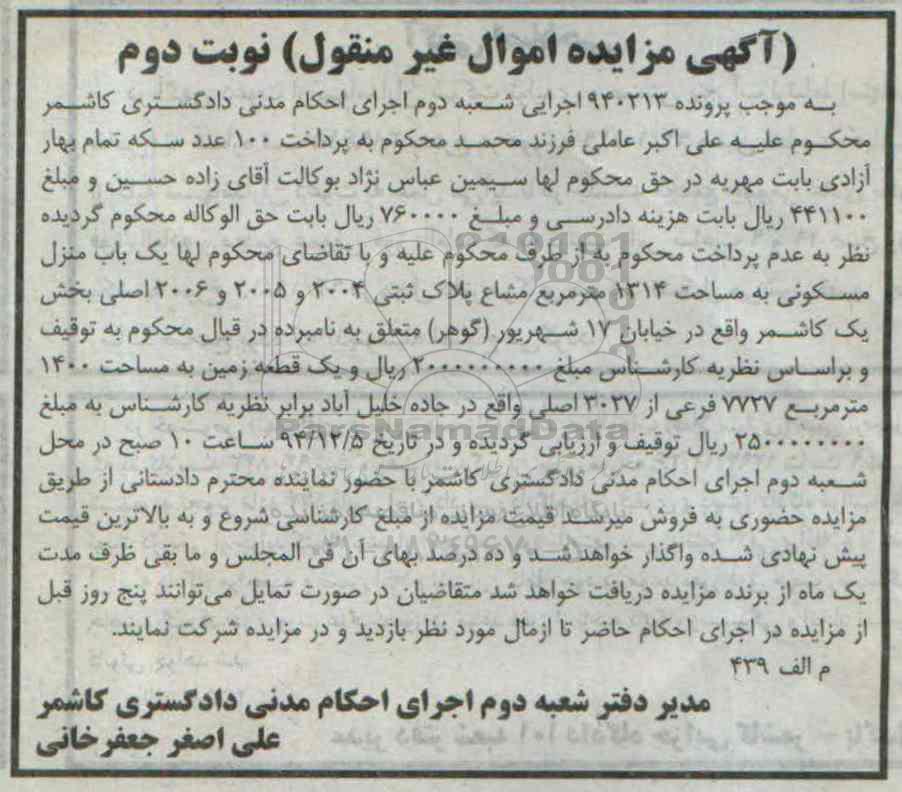 (آگهی مزایده اموال غیر منقول) نوبت دوم
به موجب پرونده ۹۴۰۲۱۳ اجرایی شعبه دوم اجرای احکام مدنی دادگستری کاشمر
محکوم علیه علی اکبر عاملی فرزند محمد محکوم به پرداخت ۱۰۰ عدد سکه تمام بهار
آزادی بابت مهریه در حق محکوم لها سیمین عباس نژاد بوکالت آقای زاده حسین و مبلغ
۴۴۱۱۰۰ ریال بابت هزینه دادرسی و مبلغ ۷۶۰۰۰۰ ریال بابت حق الوکاله محکوم گردیده
نظر به عدم پرداخت محکوم به از طرف محکوم علیه و با تقاضای محکوم لها یک باب منزل
مسکونی به مساحت ۱۳۱۴ مترمربع مشاع پلاک ثبتی ۲۰۰۴ و ۲۰۰۵ و ۲۰۰۶ اصلی بخش
یک کاشمر واقع در خیابان ۱۷ شهریور (گوهر) متعلق به نامبرده در قبال محکوم به توقیف
و براساس نظریه کارشناس مبلغ ۲۰۰۰۰۰۰۰۰۰۰ ریال و یک قطعه زمین به مساحت ۱۴۰۰
مترمربع ۷۷۲۷ فرعی از ۳۰۲۷ اصلی واقع در جاده خلیل آباد برابر نظریه کارشناس به مبلغ
۲۵۰۰۰۰۰۰۰۰ ریال توقیف و ارزیابی گردیده و در تاریخ ۹۴/۱۲/۵ ساعت ۱۰ صبح در محل
شعبه دوم اجرای احکام مدنی دادگستری کاشمر با حضور نماینده محترم دادستانی از طریق
مزایده حضوری به فروش میرسد قیمت مزایده از مبلغ کارشناسی شروع و به بالاترین قیمت
پیش نهادی شده واگذار خواهد شد و ده درصد بهای آن فی المجلس و ما بقی ظرف مدت
یک ماه از برنده مزایده دریافت خواهد شد متقاضیان در صورت تمایل می‌توانند پنج روز قبل
از مزایده در اجرای احکام حاضر تا ازمال مورد نظر بازدید و در مزایده شرکت نمایند.
م الف ۴۳۹
مدیر دفتر شعبه دوم اجرای احکام مدنی دادگستری کاشمر
علی اصغر جعفرخانی
ParsNamadData